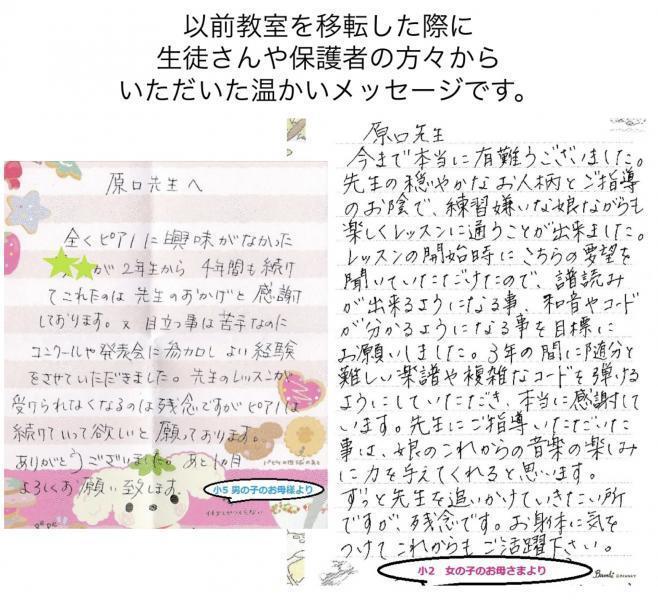 以前教室を移転した際に
生徒さんや保護者の方々から
いただいた温かいメッセージです。
原口先生へ
全くピアノに興味がなかった
が2年生から 4年間も続け
てこれたのは 先生のおかげと 感謝
しております。又 目立つ事は苦手なのに
コンクールや発表会に参加し よい経験
をさせていただきました。先生のレッスンが
受けられなくなるのは残念ですがピアノは
続けていって欲しいと 願っております。
ありがとうございました。あと1ヵ月
よろしくお願い致します。
小5 男の子のお母様より
原口先生
今まで本当に有難うございました。
先生の穏やかなお人柄とご指導
のお陰で、練習嫌いな娘ながらも
楽しくレッスンに通うことが出来ました。
レッスンの開始時にこちらの要望を
聞いていただけたので、譜読み
が出来るようになる事 和音やコード
が分かるようになる事を目標に
お願いしました。3年の間に随分と
難しい楽譜や複雑なコードを弾ける
ようにしていただき、本当に感謝して
います。先生にご指導いただいた
事は、娘のこれからの音楽の楽しみ
に力を与えてくれると思います。
ずっと先生を追いかけていきたい所
ですが、残念です。お身体に気を
つけてこれからもご活躍下さい。
小2 女の子のお母さまより
Bambi